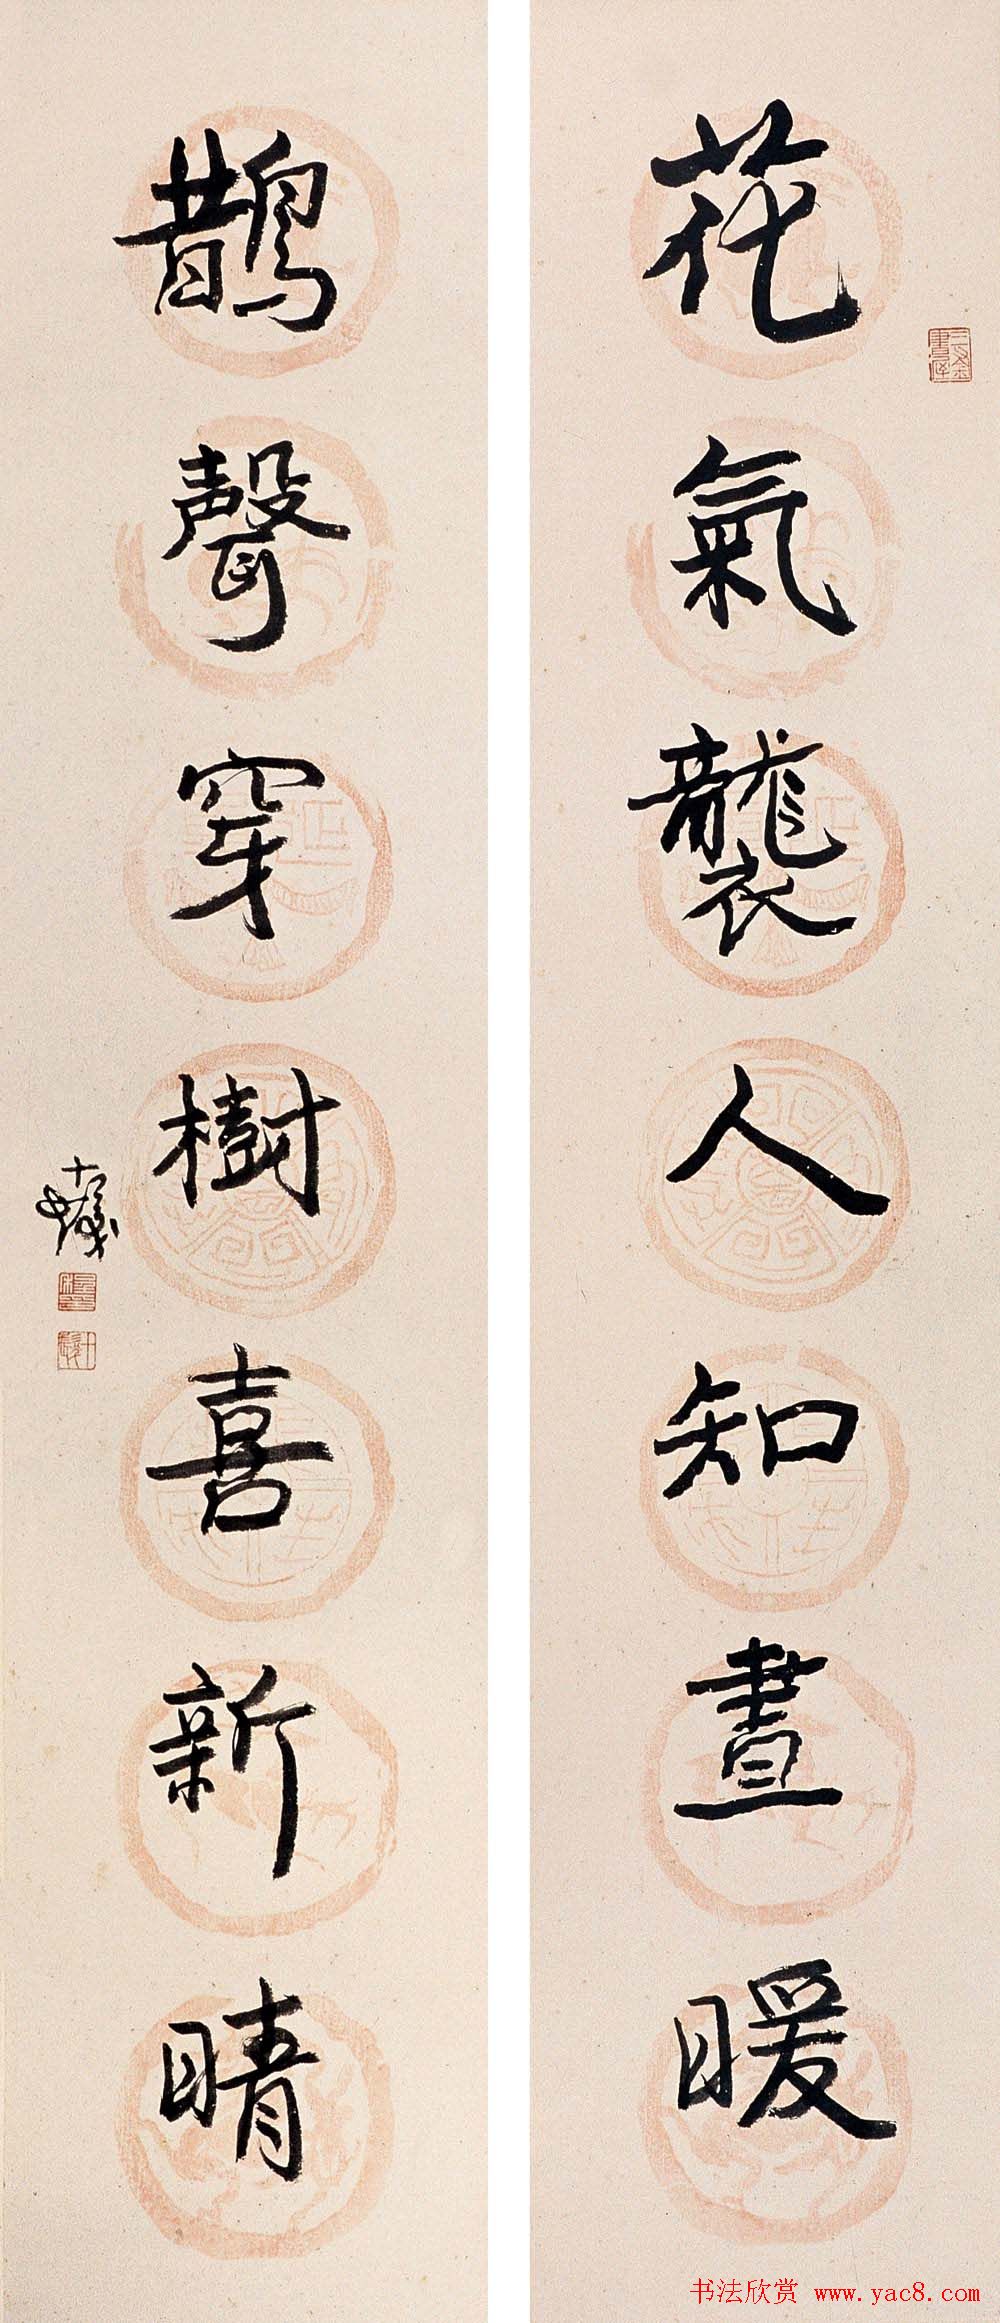 花氣襲人知晝暖
鵲聲穿樹喜新晴
十髮
书法欣赏 www.yac8.com